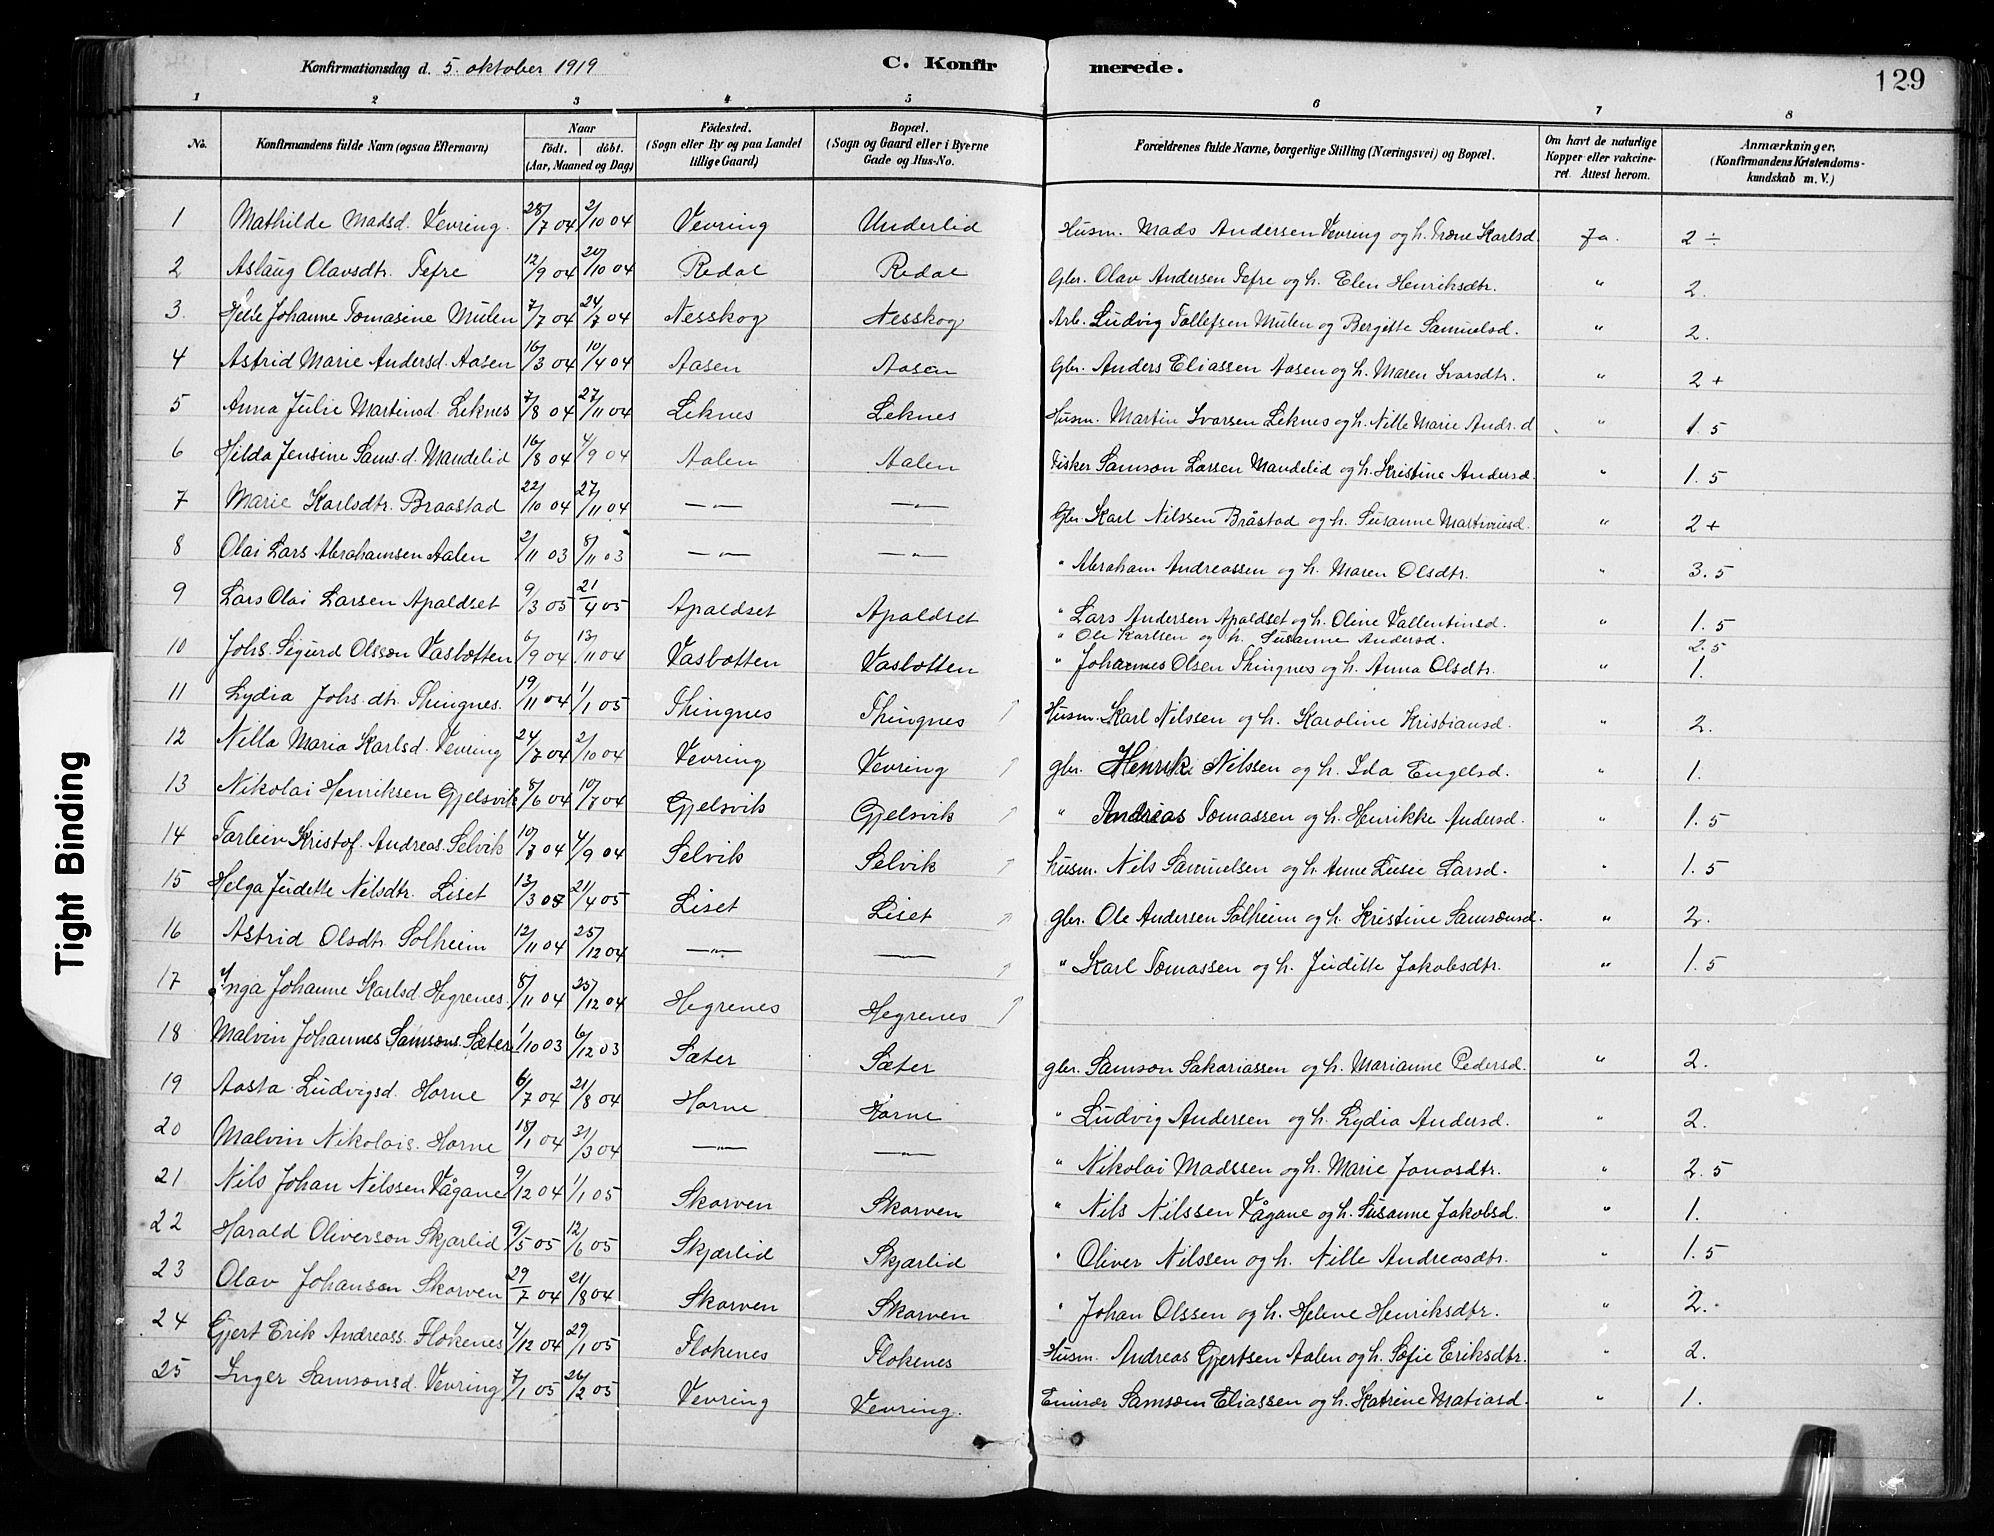 Konfirmationsdag d. 5. oktober 1919 C. Konfir merede. 129
1 2 3 4 5 6 7 8
No. Konfirmandens fulde Navn (ogsaa Efternavn) Naar født, døbt. (Aar, Maaned og Dag) Fødested. (Sogn eller By og paa Landet tillige Gaard) Bopæl. (Sogn og Gaard eller i Byerne Gade og Hus-No. Forældrenes fulde Navne, borgerlige Stilling (Næringsvei) og Bopæl. Om havt de naturlige Kopper eller vakcineret. Attest herom. Anmærkninger, (Konfirmandens Kristendomskundskab m. V.)
1 Mathilde Madsd. Vevring 28/7 04 2/10 04 Vevring Underlid Husm. Mads Andersen Vevring og h. Træne Karlsd. Ja. 2 ÷
2 Aslaug Olavsdtr. Tefre 12/9 04 20/10 04 Redal Redal Gbr. Olav Andersen Tefre og h. Elen Henriksdtr. " 2.
3. Johanne Tomasine Mulen 7/7 04 24/7 04 Nesskog Nesskog Arb. Ludvig Tollefsen Mulen og Bergitte Samuelsd. " 2.
4 Astrid Marie Andersd. Aasen 16/3 04 10/4 04 Aasen Aasen Gbr. Anders Eliassen Aasen og h. Maren Ivarsdtr. " 2+
5 Anna Julie Martinsd. Leknes 7/8 04 27/11 04 Leknes Leknes Husm. Martin Ivarsen Leknes og h. Nille Marie Andr. d " 1.5
6 Hilda Jensine Sams.d. Mandelid 16/8 04 4/9 04 Aalen Aalen Fisker Samson Larsen Mandelid og h. Kristine Andersd. " 1.5
7 Marie Karlsdtr. Braastad 22/10 04 27/11 04 —"— —"— Gbr Karl Nilssen Bråstad og h. Susanne Martinusd. " 2+
8 Olai Lars Abrahamsen Aalen 2/11 03 8/11 03 —"— —"— " Abraham Andreassen og h. Maren Olsdtr. " 3.5
9 Lars Olai Larsen Apaldset 9/3 05 21/4 05 Apaldset Apaldset " Lars Andersen Apaldset og h. Oline Vallentinsd. " 1.5
" Ole Karlsen og h. Susanne Andersd. 2.5
10 Johs. Sigurd Olsson Vasbotten 6/9 04 13/11 04 Vasbotten Vasbotten " Johannes Olsen Thingnes og h. Anna Olsdtr. " 1.
11 Lydia Johs. dtr. Thingnes. 19/11 04 1/1 05 Thingnes Thingnes ↑ Husm. Karl Nilssen og h. Karoline Kristiansd. " 2.
12 Nilla Maria Karlsd. Vevring 24/7 04 2/10 04 Vevring Vevring ↑ gbr. Henrik Nilssen og h. Ida Engelsd. " 1.
13 Nikolai Henriksen Gjelsvik 8/6 04 10/7 04 Gjelsvik Gjelsvik ↑ " Andreas Tomassen og h. Henrikke Andersd. " 1.5
14 Torleiv Kristof. Andreas. Selvik 10/7 04 4/9 04 Selvik Selvik ↑ husm. Nils Samuelsen og h. Anne Lusie Larsd. " 1.5
15 Helga Judette Nilsdtr. Liset 13/3 05 21/4 05 Liset Liset ↑ gbr. Ole Andersen Solheim og h. Kristine Samsonsd. " 2.
16 Astrid Olsdtr Solheim 12/11 04 25/12 04 —"— —— ↑ " Karl Tomassen og h. Juditte Jakobsdtr. " 1.5
17 Inga Johanne Karlsd. Hegrenes. 8/11 04 25/12 04 Hegrenes Hegrenes ↑
18 Malvin Johannes Samsons. Sæter 1/10 03 6/12 03 Sæter Sæter gbr. Samson Sakariassen og h. Marianne Pedersd. " 2.
19 Aasta Ludvigsd. Horne 6/7 04 21/8 04 Horne Horne " Ludvig Andersen og h. Lydia Andersd. " 2.
20 Malvin Nikolais. Horne 18/1 04 31/3 04 —"— —— " Nikolai Madssen og h. Marie Jonasdtr. " 2.5
21 Nils Johan Nilssen Vågane 9/12 04 1/1 05 Skorven Skorven " Nils Nilssen Vågane og h. Susanne Jakobsd. " 1.
22 Harald Oliverson Skjærlid 9/5 05 12/6 05 Skjærlid Skjærlid " Oliver Nilssen og h. Nille Andreasdtr. " 1.5
23 Olav Johanson Skorven 29/7 04 21/8 04 Skorven Skorven " Johan Olssen og h. Helene Henriksdtr. " 2.
24 Gjert Erik Andreass. Flokenes 4/12 04 29/1 05 Flokenes Flokenes Husm. Andreas Gjertsen Aalen og h. Sofie Eriksdtr. " 2.
25 Inger Samsonsd. Vevring 7/1 05 26/2 05 Vevring Vevring. Samson Eliassen og h. Katrine Matiasd. " 1.
Tight Binding